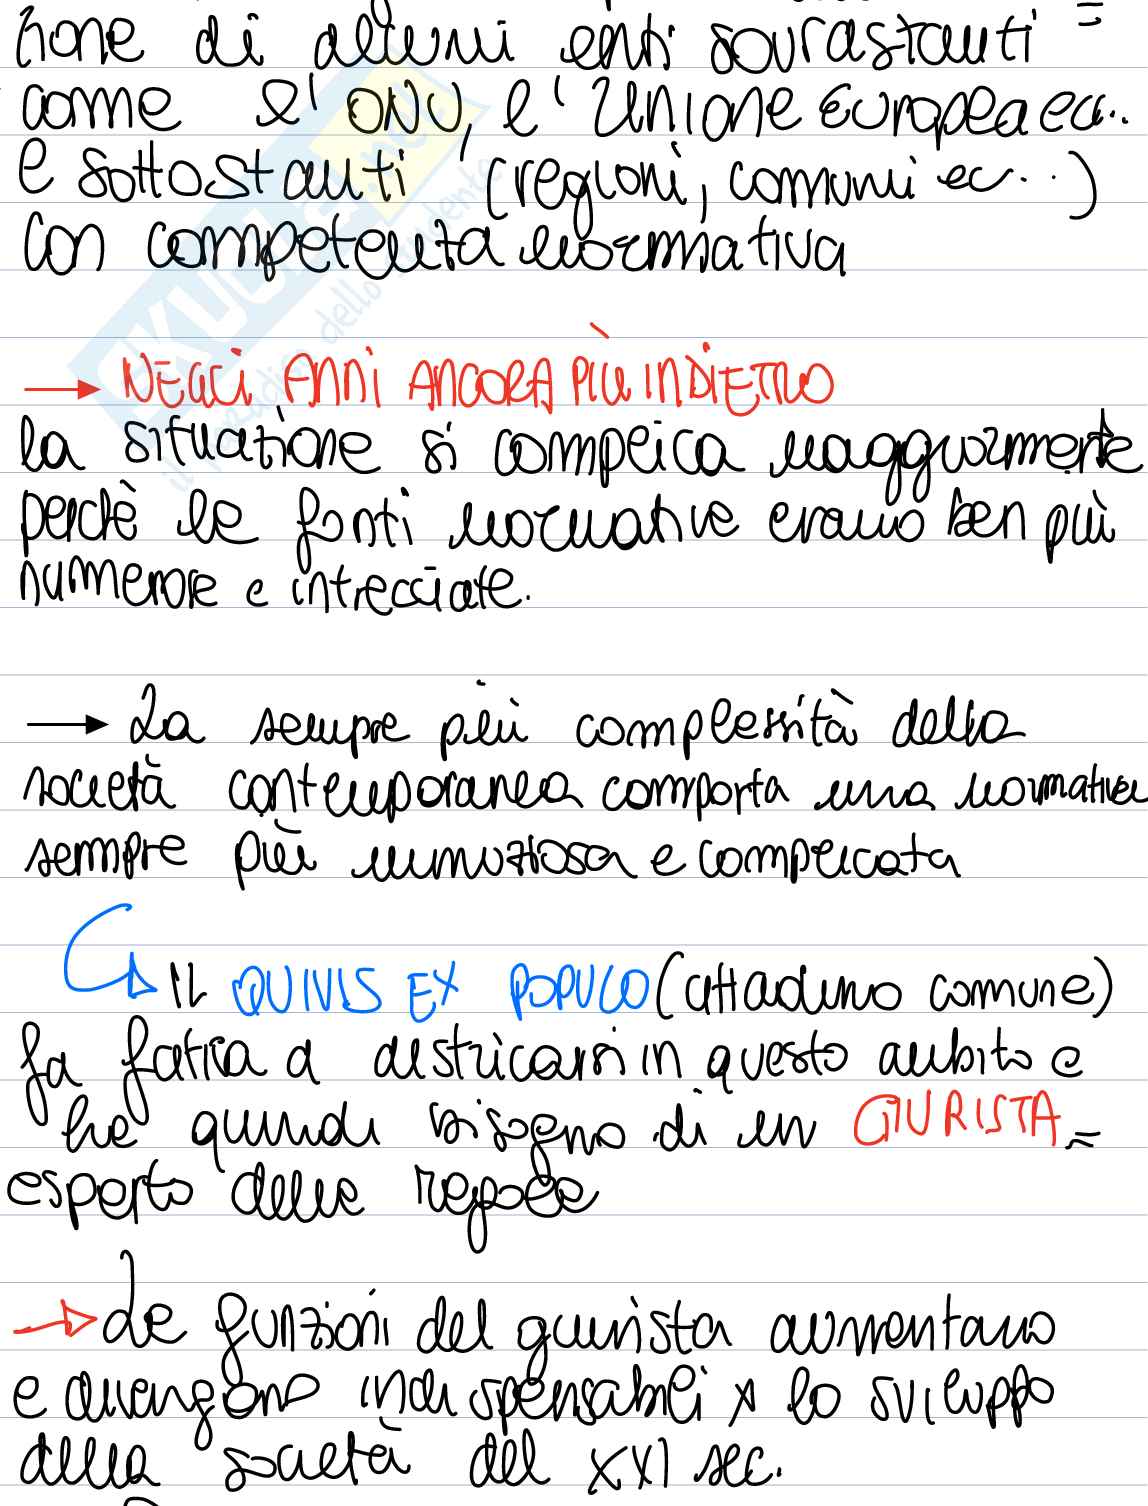 zione di alcuni enti sovrastanti =
come l'ONU, l'Unione Europea ecc..
e sottostanti (regioni, comuni ec...)
con competenza normativa
→ NEGLI ANNI ANCORA PIÙ INDIETRO
la situazione si complica maggiormente
perchè le fonti normative erano ben più
numerose e intrecciate.
→ La sempre più complessità della
società contemporanea comporta una normativa
sempre più minuziosa e complicata
IL QUIVIS EX POPULO (cittadino comune)
fa fatica a districarsi in questo ambito e
ha quindi bisogno di un GIURISTA =
esperto delle regole
→ Le funzioni del giurista aumentano
e divengono indispensabili x lo sviluppo
della società del XXI sec.
SKUOLA.net
il paradiso dello studente